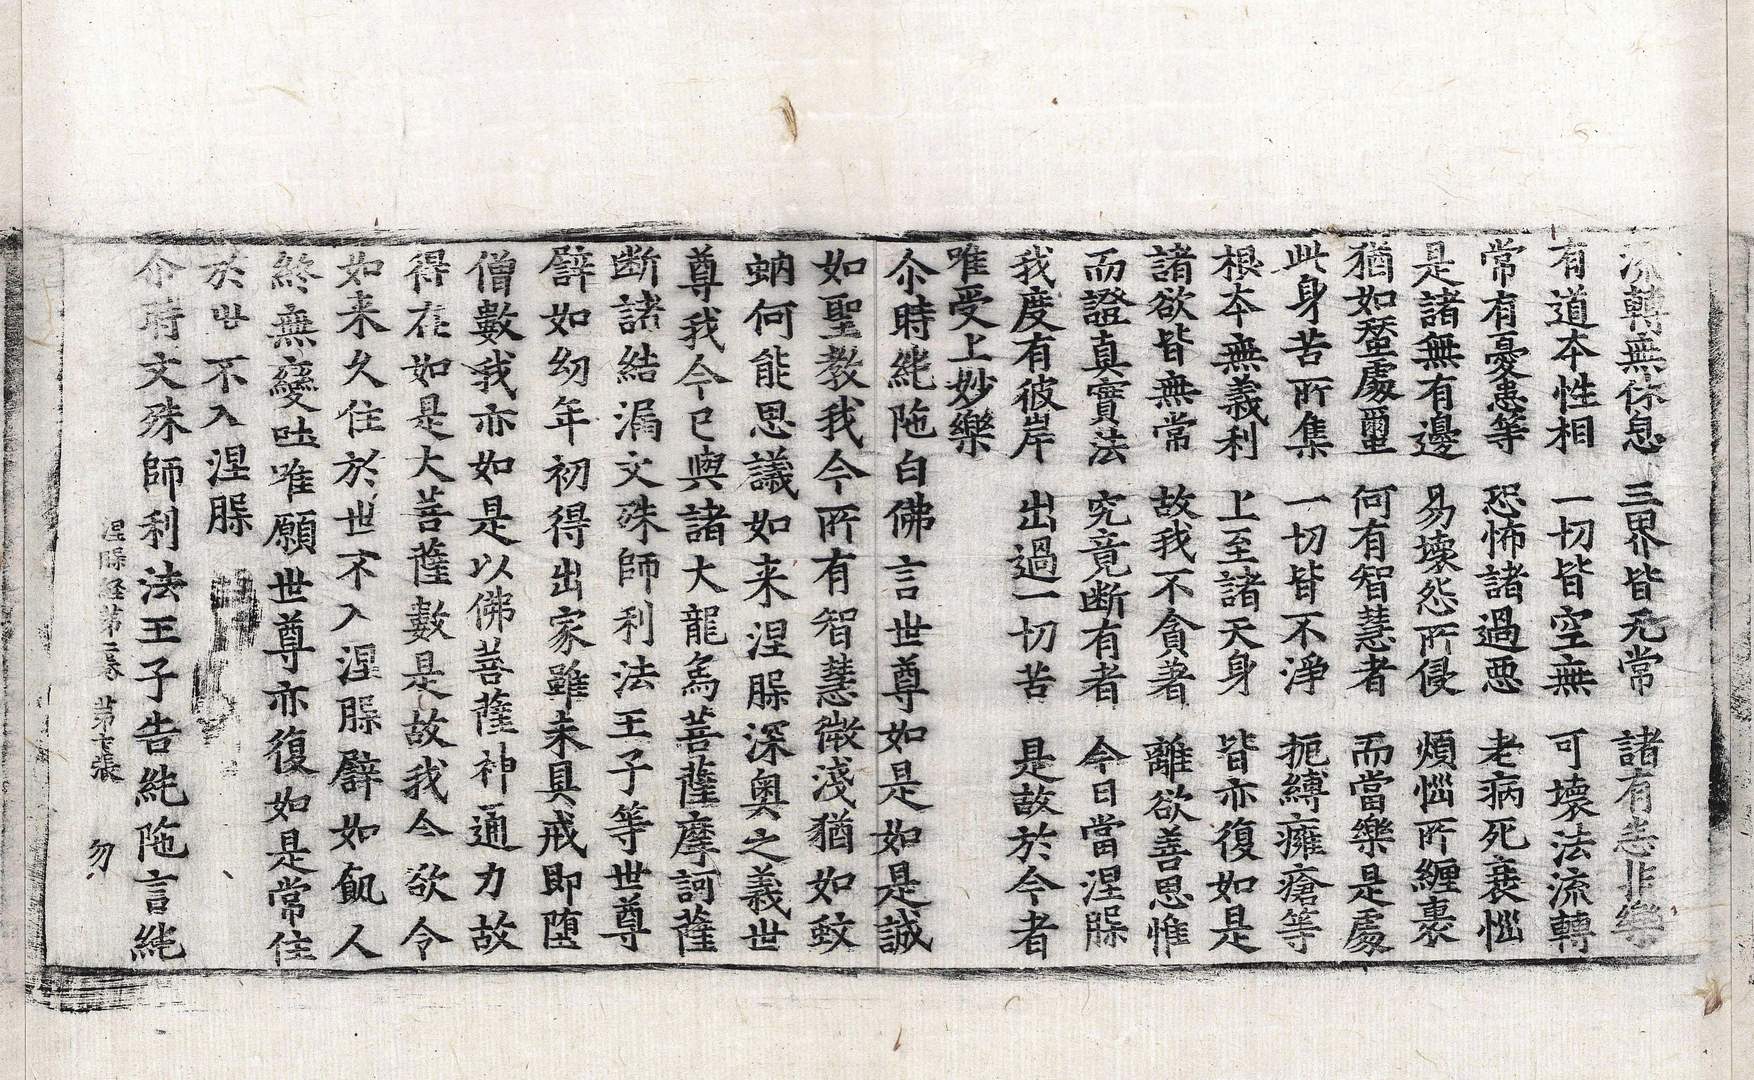 流轉無休息 三界皆无常 諸有悉非樂
有道夲性相 一切皆空無 可壞法流轉
常有憂患等 恐怖諸過惡 老病死衰惱
是諸無有邊 易壞怨所侵 煩惱所纏裹
猶如蠶處𠁅 何有智慧者 而當樂是處
此身苦所集 一切皆不淨 扼縛癰瘡等
根夲無義利 上至諸天身 皆亦復如是
諸欲皆無常 故我不貪著 離欲善思惟
而證真實法 究竟断有者 今日當涅槃
我度有彼岸 出過一切苦 是故於今者
唯受上妙樂
尒時純陁白佛言世尊如是如是誠
如聖教我今所有智慧微淺猶如蚊
蚋何能思議如来涅槃深奥之義世
尊我今已與諸大龍烏菩薩摩訶薩
断諸結漏文殊師利法王子等世尊
譬如幼年初得出家雖未具戒即堕
僧數我亦如是以佛菩薩神通力故
得在如是大菩薩數是故我今欲令
如来久住於世不入涅槃譬如飢人
終無變吐唯願世尊亦復如是常住
於世不入涅槃
尒時文殊師利法王子告純陁言純
涅槃経苐二卷 苐十張 勿